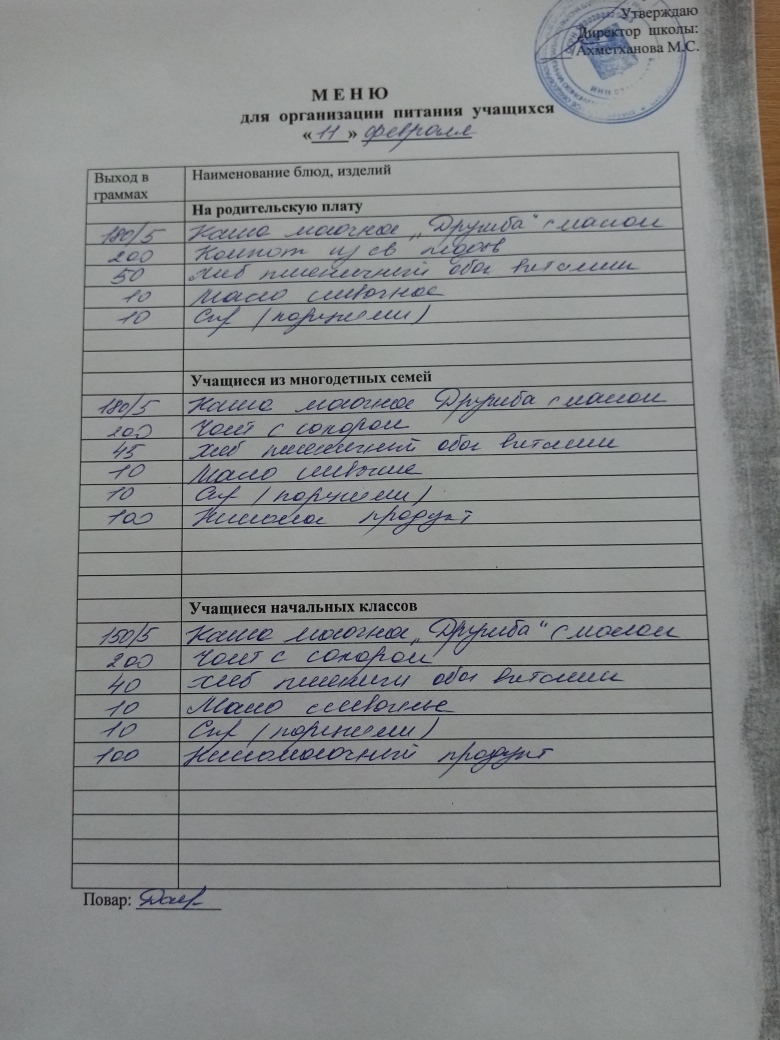 Утверждаю
Директор школы:
Ахметханова М.С.
М Е Н Ю
для организации питания учащихся
« 11 » февраля
Выход в граммах Наименование блюд, изделий
На родительскую плату
180/5 Каша молочная „Дружба“ с маслом
200 Компот из св плодов
50 Хлеб пшеничный обог витамин
10 Масло сливочное
10 Сыр (порциями)
Учащиеся из многодетных семей
180/5 Каша молочная Дружба с маслом
200 Чай с сахаром
45 Хлеб пшеничный обог витамин
10 Масло сливочное
10 Сыр (порциями)
100 Кисломол продукт
Учащиеся начальных классов
150/5 Каша молочная „Дружба“ с маслом
200 Чай с сахаром
40 Хлеб пшеничн обог витамин
10 Масло сливочное
10 Сыр (порциями)
100 Кисломолочный продукт
Повар: